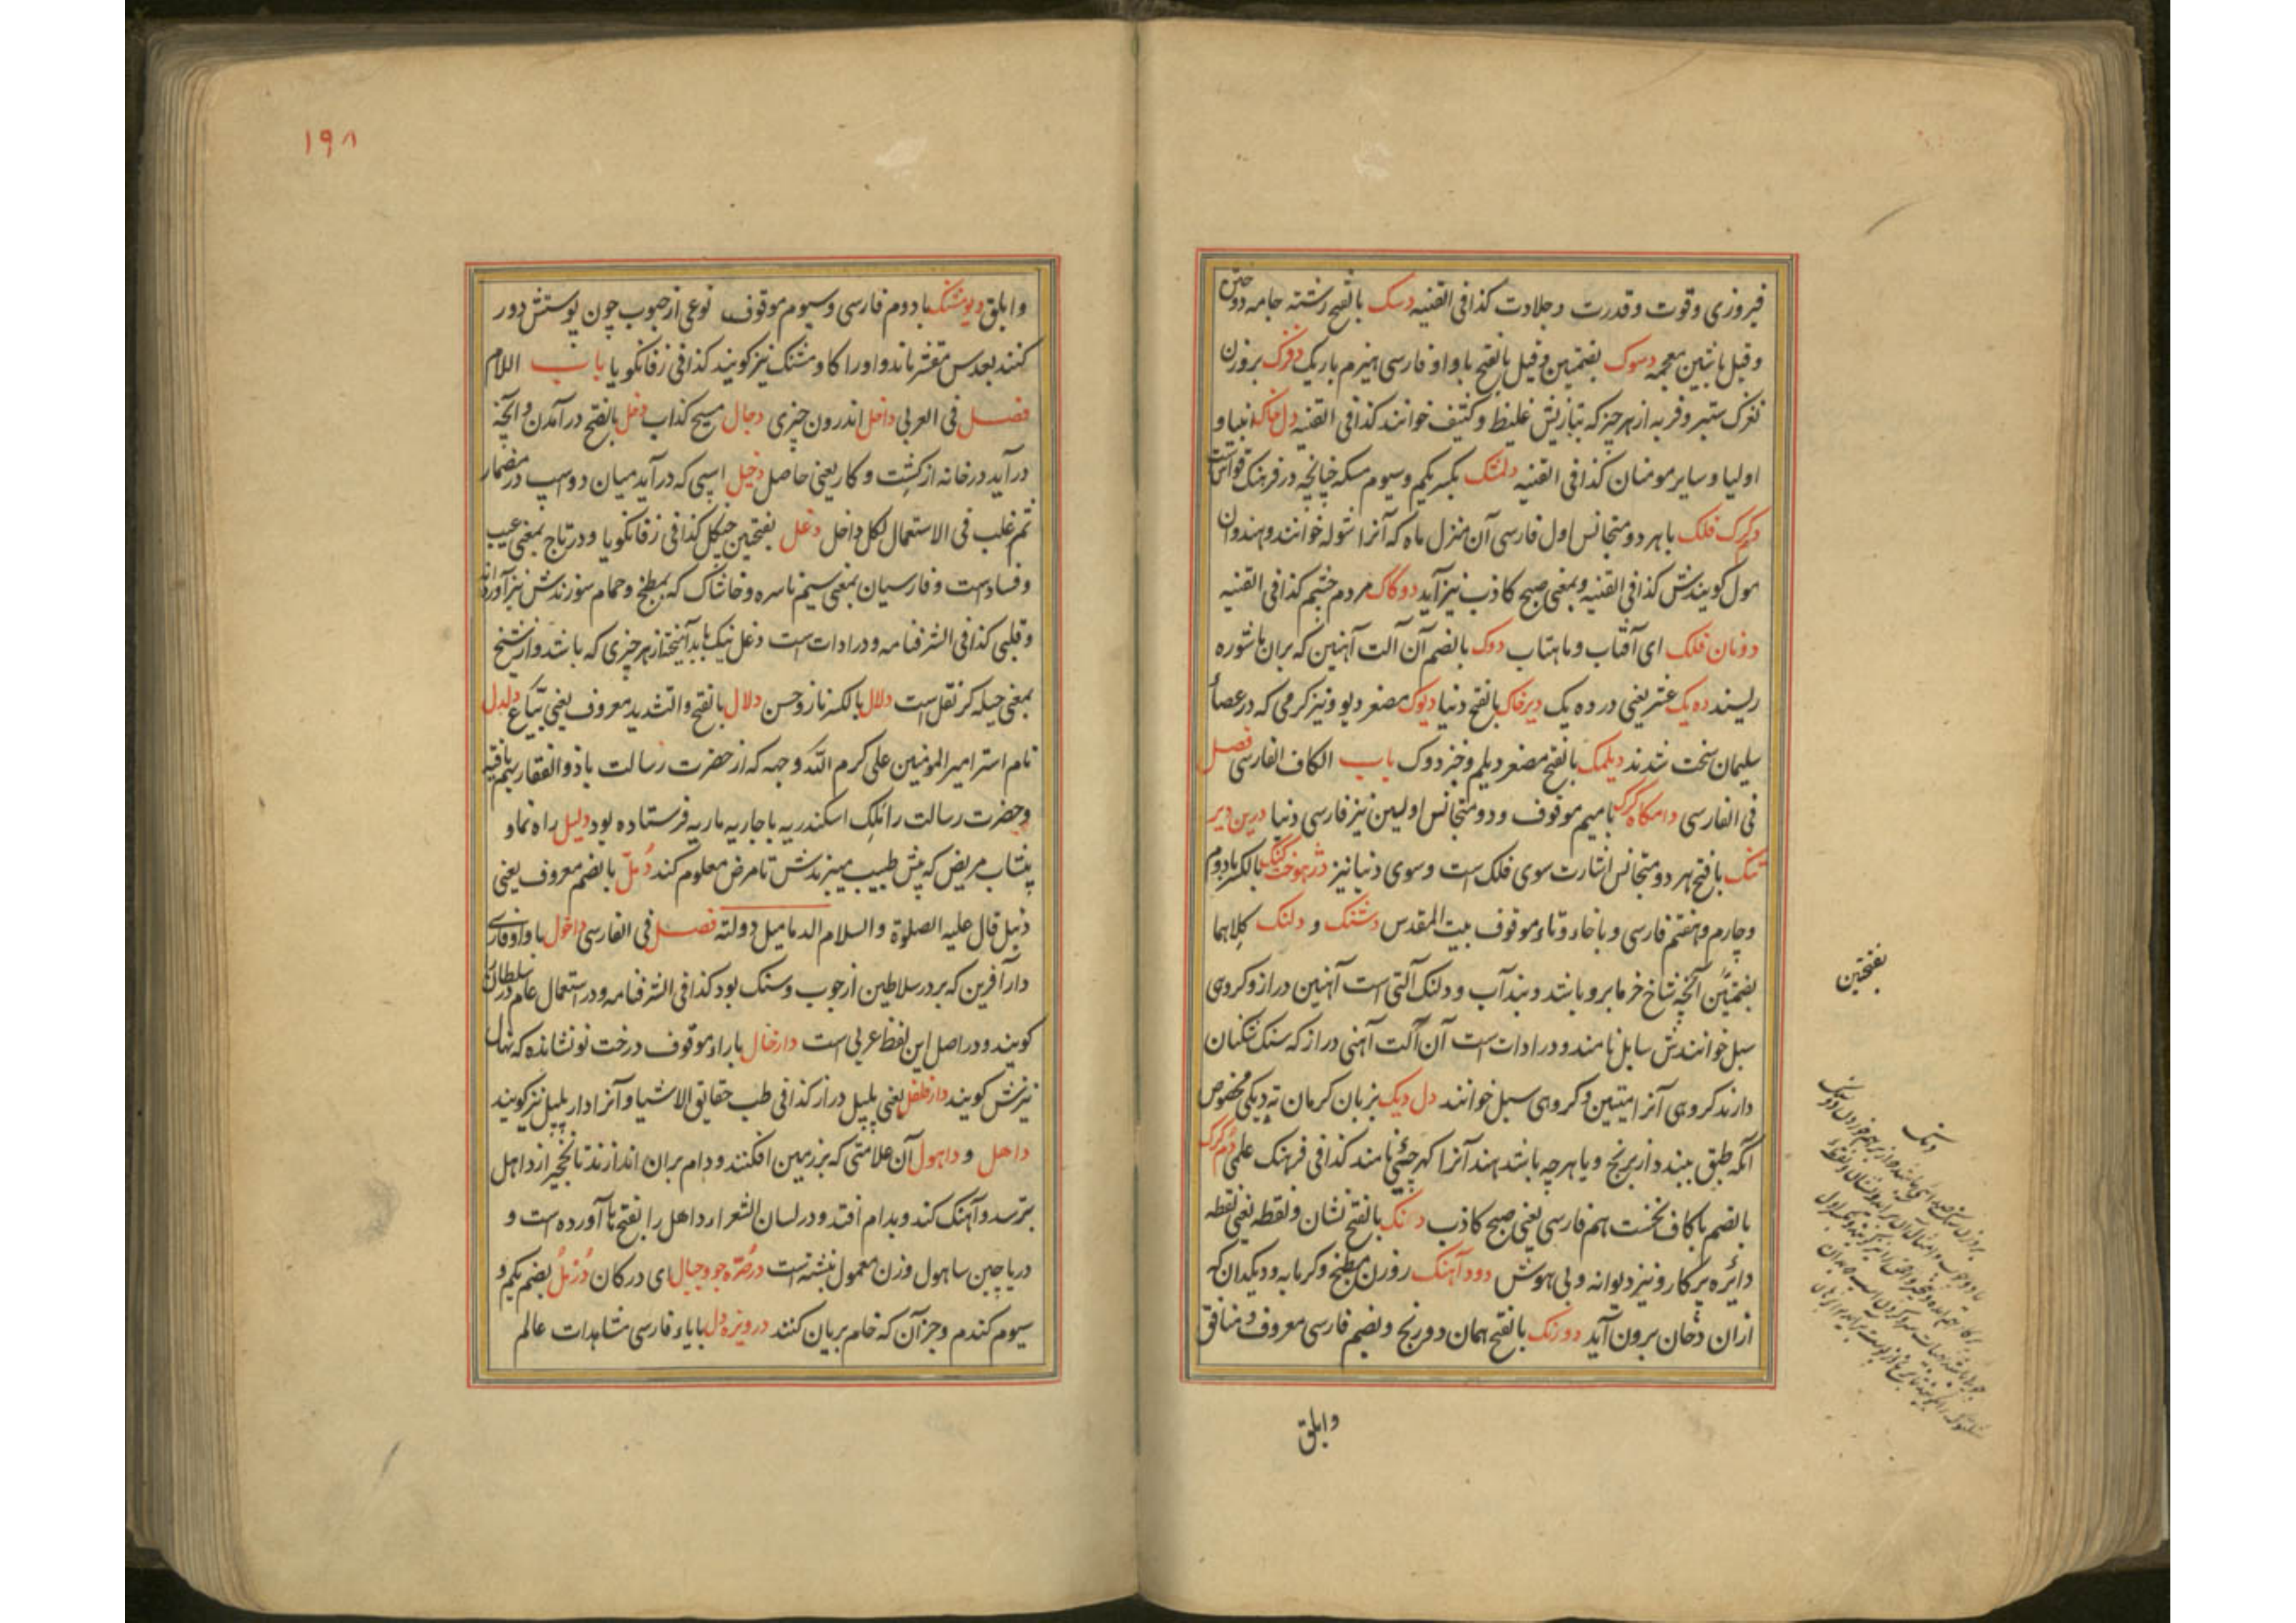 فیروزی و قوت و قدرت و جلادت کذا فی القنیه دسک بالفتح رشته جامه دوختن
و قیل باشین معجمه دسوک بضمتین و قیل بالفتح با واو فارسی هیزم باریک دفزک بر وزن
نغزک ستبر و فربه از هر چیز که بتازیش غلیظ و کثیف خوانند کذا فی القنیه دل خاک انبیا و
اولیا و سایر مومنان کذا فی القنیه دلمشک بکسر یکم و سیوم مسکه چنانچه در فرهنگ قواس است
دکرک فلک با هر دو متجانس اول فارسی آن منزل ماه که آنرا شوله خوانند و هندوان
مول کویندش کذا فی القنیه و بمعنی صبح کاذب نیز آید دوکاک مردم چشم کذا فی القنیه
دونان فلک ای آفتاب و ماهتاب دوک بالضم آن آلت آهنین که بران ماشوره
ریسند ده یک عشر یعنی در ده یک دیرخاک بالفتح دنیا دیوک مصغر دیو و نیز کرمی که در عصأ
سلیمان سخت شدند دیلمک بالفتح مصغر دیلم و خبزدوک باب الکاف الفارسی فصل
فی الفارسی دامکاه کرک با میم موقوف و دو متجانس اولین نیز فارسی دنیا درین دیر
تنک با فتح هر دو متجانس اشارت سوی فلک است و سوی دنیا نیز دژهوخت کنک بالکسر با دوم
و چارم و هفتم فارسی و با خاء و تاء موقوف بیت المقدس دشنک و دلنک کلاهما
بضمتین آنچه شاخ خرما برو باشد و بند آب و دلنک آلتی است آهنین دراز و کروهی
سبل خوانندش سابل نامند و در ادات است آن آلت آهنی دراز که سنک شکنان
دارند کروهی آنرا میتین و کروهی سبل خوانند دل دیک بزبان کرمان ته دیکی مخصوص
آنکه طبق ببندد از برنج و یا هر چه باشد هند آنرا کهرچنی نامند کذا فی فرهنک علمی دم کرک
بالضم با کاف نخست هم فارسی یعنی صبح کاذب دنک بالفتح نشان و نقطه یعنی نقطه
دائره پرکار و نیز دیوانه و بی هوش دود آهنک روزن مطبخ و کرمابه و دیکدان که
ازان دخان برون آید دورنک بالفتح همان دورنج و بضم فارسی معروف و منافق
وابلق
بفتحتین
دنک
۱۹۸
و ابلق دیومشنک با دوم فارسی و سیوم موقوف نوعی از حبوب چون پوستش دور
کنند بعدس مقشر ماند و او را کاومشنک نیز کویند کذا فی زفانکویا باب اللام
فصل فی العربی داخل اندرون چیزی دجال مسیح کذاب دخل بالفتح درآمدن و آنچه
درآید در خانه از کشت و کار یعنی حاصل دخیل اسپی که درآید میان دو اسپ در مضمار
ثم غلب فی الاستعمال لکل داخل دغل بفتحتین جنکل کذا فی زفانکویا و در تاج بمعنی عیب
و فساد است و فارسیان بمعنی سیم ناسره و خاشاک که بمطبخ و حمام سوزندش نیز آورده اند
و قلبی کذا فی الشرفنامه و در ادات است دغل نیک با بد آمیخته از هر چیزی که باشد و از شیخ
بمعنی حیله کر نقل است دلال بالکسر ناز و حسن دلال بالفتح و التشدید معروف یعنی بیاع دلدل
نام استر امیر المومنین علی کرم الله وجهه که از حضرت رسالت با ذوالفقار بهم یافته
و حضرت رسالت را ملک اسکندریه با جاریه ماریه فرستاده بود دلیل راه نما و
پیشاب مریض که پیش طبیب میبرندش تا مرض معلوم کند دمل بالضم معروف یعنی
دنبل قال علیه الصلوة والسلام الدمامیل دولته فصل فی الفارسی داخول با واو فارسی
دارآفرین که بر در سلاطین از چوب و سنک بود کذا فی الشرفنامه و در استعمال عام در سلطان را
کویند و در اصل این لفظ عربی است دارخال با راء موقوف درخت نو نشانده که نهال
نیزش کویند دارفلفل یعنی پلپل دراز کذا فی طب حقایق الاشیا و آنرا دارپلپل نیز کویند
داهل و داهول آن علامتی که بر زمین افکنند و دام بران اندازند تا نخجیر از داهل
بترسد و آهنک کند و بدام افتد و در لسان الشعرا داهل را بفتح ها آورده است و
دریا چین ساهول وزن معمول نبشته است در صره جو و جبال ای در کان درمل بضم یکم و
سیوم کندم و جز آن که خام بریان کنند دروزه دل با یاء فارسی مشاهدات عالم